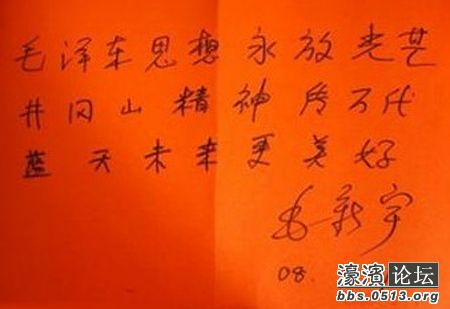 毛泽东思想永放光芒
井冈山精神传万代
蓝天未来更美好
毛新宇
08.
濠滨论坛
bbs.0513.org